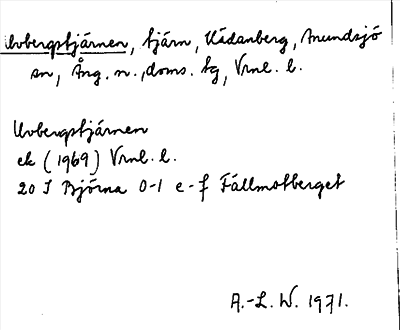 Uvbergstjärnen, tjärn, Kådanberg, Anundsjö
sn, Ång. n., doms. tg, Vrnl. l.
Uvbergstjärnen
ek (1969) Vrnl. l.
20 I Björna 0-1 e-f Fällmotberget
A.-L. W. 1971.